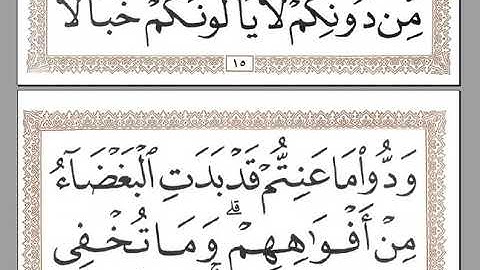 مِّن دُونِكُمْ لَا يَأْلُونَكُمْ خَبَالًا
١٥
وَدُّوا۟ مَا عَنِتُّمْ قَدْ بَدَتِ ٱلْبَغْضَآءُ
مِنْ أَفْوَٰهِهِمْ ۖ وَمَا تُخْفِى